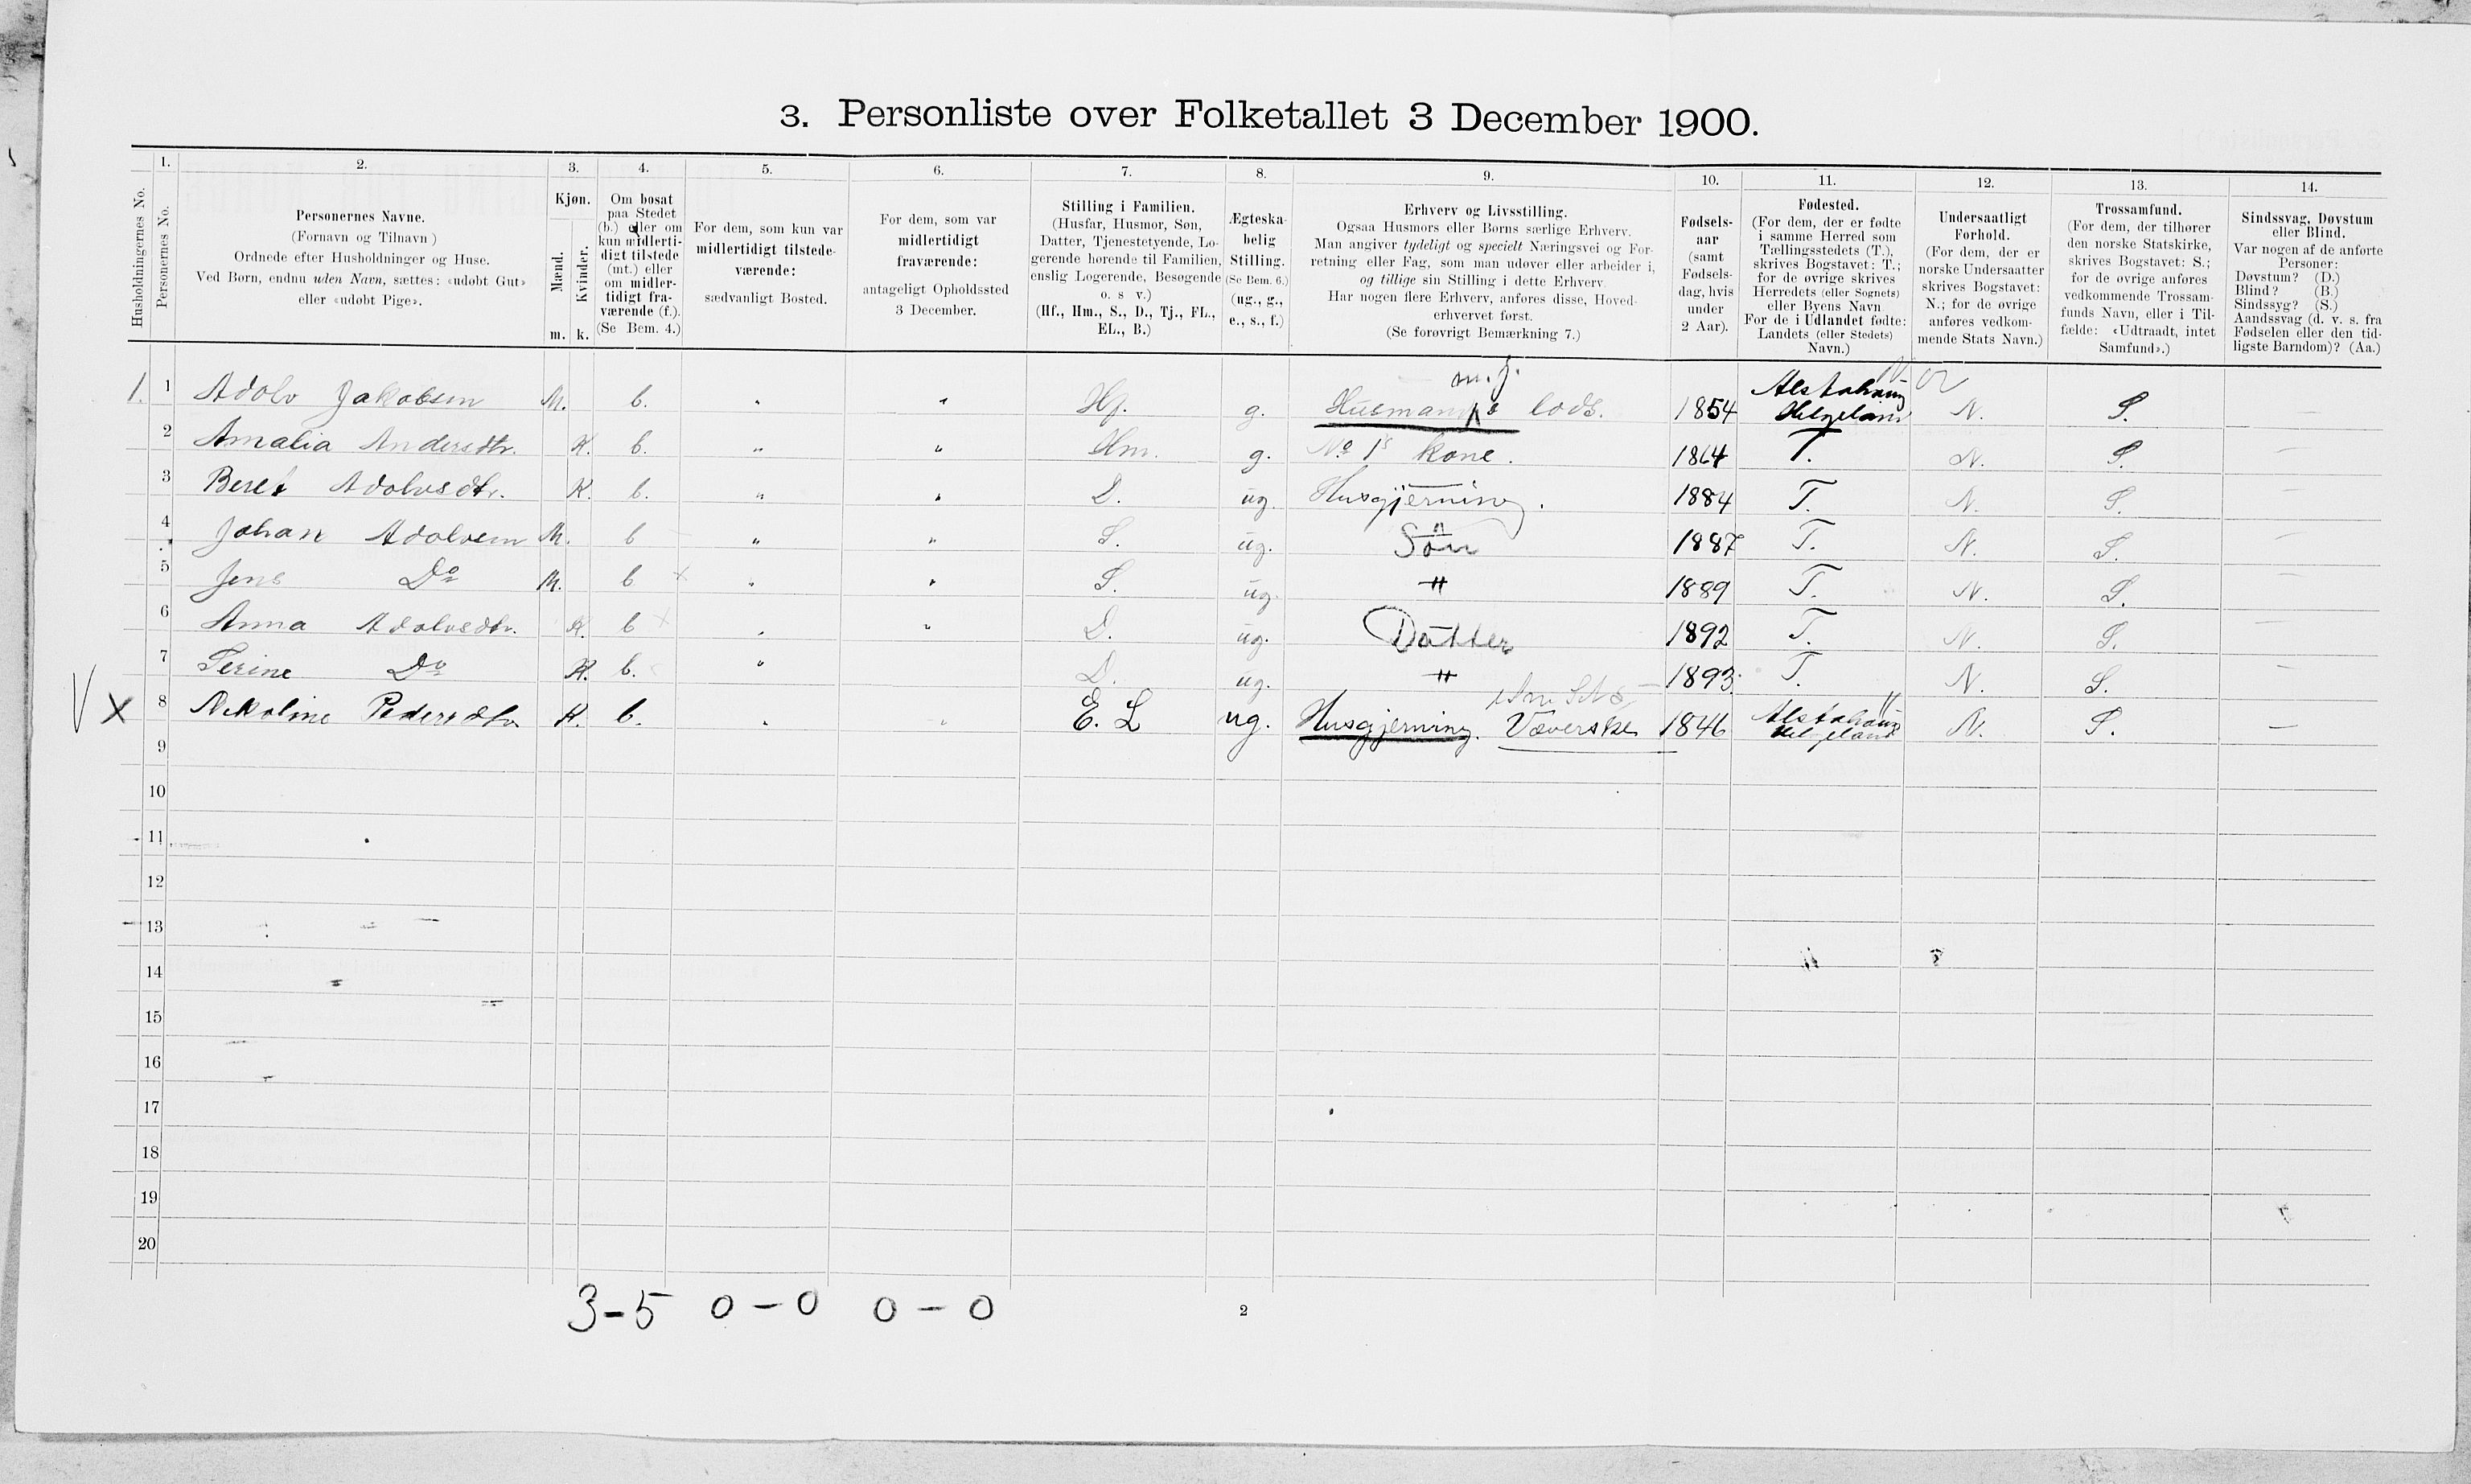 3. Personliste over Folketallet 3 December 1900.
1. 2. 3. 4. 5. 6. 7. 8. 9. 10. 11. 12. 13. 14.
Husholdningernes No.
Personernes No.
Personernes Navne.
(Fornavn og Tilnavn)
Ordnede efter Husholdninger og Huse.
Ved Børn, endnu uden Navn, sættes: «udøbt Gut»
eller «udøbt Pige».
Kjøn.
Mænd.
Kvinder.
m. k.
Om bosat
paa Stedet
(b.) eller om
kun midlerti-
digt tilstede
(mt.) eller
om midler-
tidigt fra-
værende (f.).
(Se Bem. 4.)
For dem, som kun var
midlertidigt tilstede-
værende:
sædvanligt Bosted.
For dem, som var
midlertidigt
fraværende:
antageligt Opholdssted
3 December.
Stilling i Familien.
(Husfar, Husmor, Søn,
Datter, Tjenestetyende, Lo-
gerende hørende til Familien,
enslig Logerende, Besøgende
o. s v.)
(Hf., Hm., S., D., Tj., FL.,
EL., B.)
Ægteska-
belig
Stilling.
(Se Bem. 6.)
(ug., g.,
e., s., f.)
Erhverv og Livsstilling.
Ogsaa Husmors eller Børns særlige Erhverv.
Man angiver tydeligt og specielt Næringsvei og For-
retning eller Fag, som man udøver eller arbeider i,
og tillige sin Stilling i dette Erhverv.
Har nogen flere Erhverv, anføres disse, Hoved-
erhvervet først.
(Se forøvrigt Bemærkning 7.)
Fødsels-
aar
(samt
Fødsels-
dag, hvis
under
2 Aar).
Fødested.
(For dem, der er fødte
i samme Herred som
Tællingsstedets (T.),
skrives Bogstavet: T.;
for de øvrige skrives
Herredets (eller Sognets)
eller Byens Navn
For de i Udlandet fødte:
Landets (eller Stedets)
Navn.)
Undersaatligt
Forhold.
(For dem, der er
norske Undersaatter
skrives Bogstavet:
N.; for de øvrige
anføres vedkom-
mende Stats Navn.)
Trossamfund.
(For dem, der tilhører
den norske Statskirke,
skrives Bogstavet: S.;
for de øvrige anføres
vedkommende Trossam-
funds Navn, eller i Til-
fælde: «Udtraadt, intet
Samfund».)
Sindssvag, Døvstum
eller Blind.
Var nogen af de anførte
Personer:
Døvstum? (D.)
Blind? (B.)
Sindssyg? (S.)
Aandssvag (d. v. s. fra
Fødselen eller den tid-
ligste Barndom)? (Aa.)
m. j.
1. 1 Adolv Jakobsen M. b. " " Hf. g. Husmands lods. 1854 Alstahaug Helgeland N. S. —
2 Amalia Andersdtr. K. b. " " Hm. g. No 1s kone. 1864 T. N. S. —
3 Beret Adolvsdtr. K. b. " " D. ug. Husgjerning. 1884 T. N. S. —
4 Johan Adolvsen M. b " " S. ug. Søn 1887 T. N. S. —
5 Jens Do M. b x " " S. ug. " 1889 T. N. S. —
6 Anna Adolvsdtr. K. b x " " D. ug. Datter 1892 T. N. S. —
7 Serine Do K. b. " D. ug. " 1893 T. N. S. —
V x 8 Nekoline Pedersdtr K. b. " " E. L ug. Husgjerning. Væverske 1846 Alstahaug Helgeland N. S. —
9
10
11
12
13
14
15
16
17
18
19
20
3-5 0-0 0-0
2